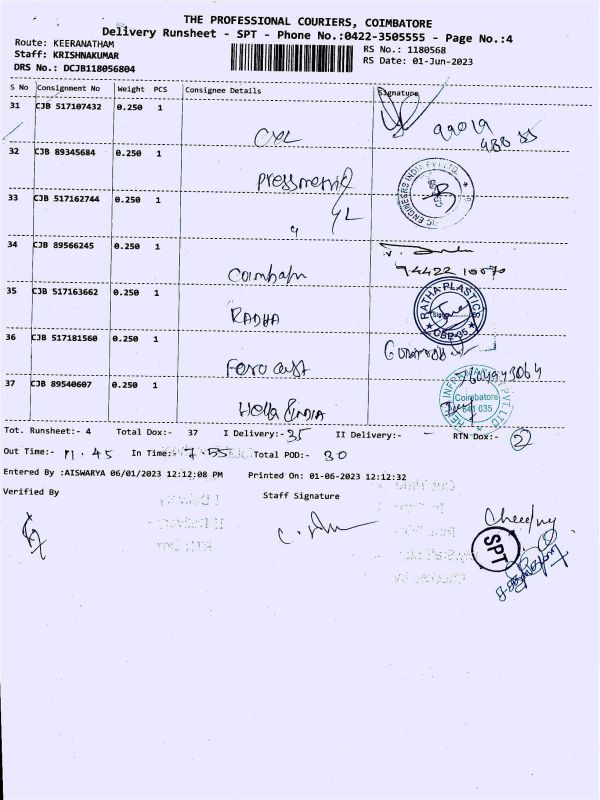 THE PROFESSIONAL COURIERS, COIMBATORE
Delivery Runsheet - SPT - Phone No.:0422-3505555 - Page No.:4
Route: KEERANATHAM
RS No.: 1180568
Staff: KRISHNAKUMAR
RS Date: 01-Jun-2023
DRS No.: DCJB118056804
S No Consignment No Weight PCS Consignee Details Signature
31 CJB 517107432 0.250 1
99019
32 CJB 89345684 0.250 1
33 CJB 517162744 0.250 1
34 CJB 89566245 0.250 1
35 CJB 517163662 0.250 1
RADHA
RATHA PLASTICS
CBE-35
36 CJB 517181560 0.250 1
37 CJB 89540607 0.250 1
Hella INDIA
Coimbatore
641 035
Tot. Runsheet:- 4 Total Dox:- 37 I Delivery:- 35 II Delivery:- - RTN Dox:- 2
Out Time:- 11.45 In Time:- 7.55 Total POD:- 30
Entered By :AISWARYA 06/01/2023 12:12:08 PM Printed On: 01-06-2023 12:12:32
Verified By Staff Signature
SPT